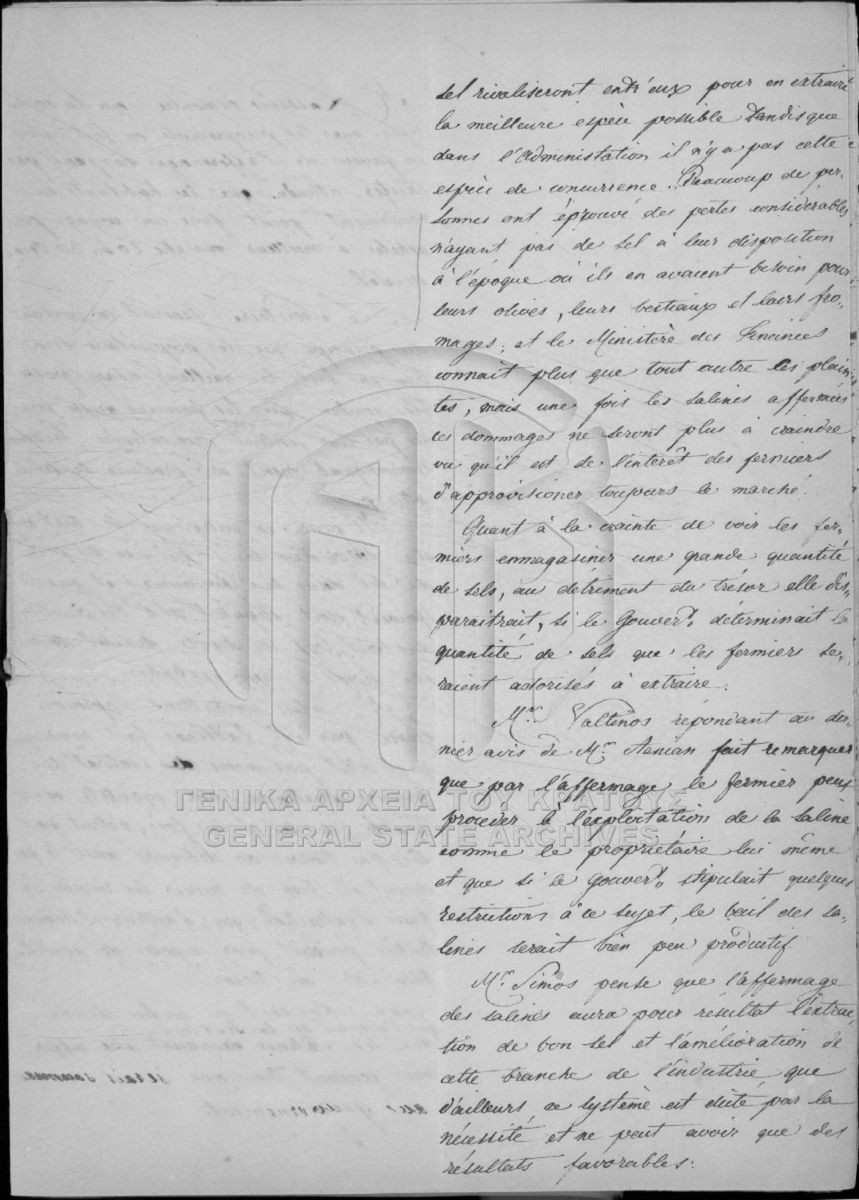 sel rivaliseront entr'eux pour en extraire
la meilleure espèce possible tandisque
dans l'Administation il n'y a pas cette
espèce de concurrence. Beaucoup de per-
sonnes ont éprouvé des pertes considérables
n'ayant pas de sel à leur disposition
à l'époque où ils en avaient besoin pour
leurs olives, leurs bestiaux et leurs fro-
mages; et le Ministère des Finances
connait plus que tout autre les plain-
tes, mais une fois les salines affermées
ces dommages ne seront plus à craindre
vu qu'il est de l'intérêt des fermiers
d'approvisioner toujours le marché.
Quant à la crainte de voir les fer-
miers enmagasiner une grande quantité
de sels, au détriment du trésor elle dis-
paraitrait, si le Gouvert. déterminait la
quantité de sels que les fermiers se-
raient autorisés à extraire.
Mr. Valtinos répondant au der-
nier avis de Mr. Aenian fait remarquer
que par l'affermage le fermier peut
proceder à l'exploitation de la saline
comme le propriétaire lui même
et que si le Gouvert. stipulait quelques
restrictions à ce sujet, le bail des sa-
lines serait bien peu productif
Mr. Simos pense que l'affermage
des salines aura pour résultat l'extrac-
tion de bon sel et l'amélioration de
cette branche de l'industrie que
d'ailleurs, ce système est dicté par la
nécessité et ne peut avoir que des
résultats favorables.
ΓΕΝΙΚΑ ΑΡΧΕΙΑ ΤΟΥ ΚΡΑΤΟΥΣ
GENERAL STATE ARCHIVES